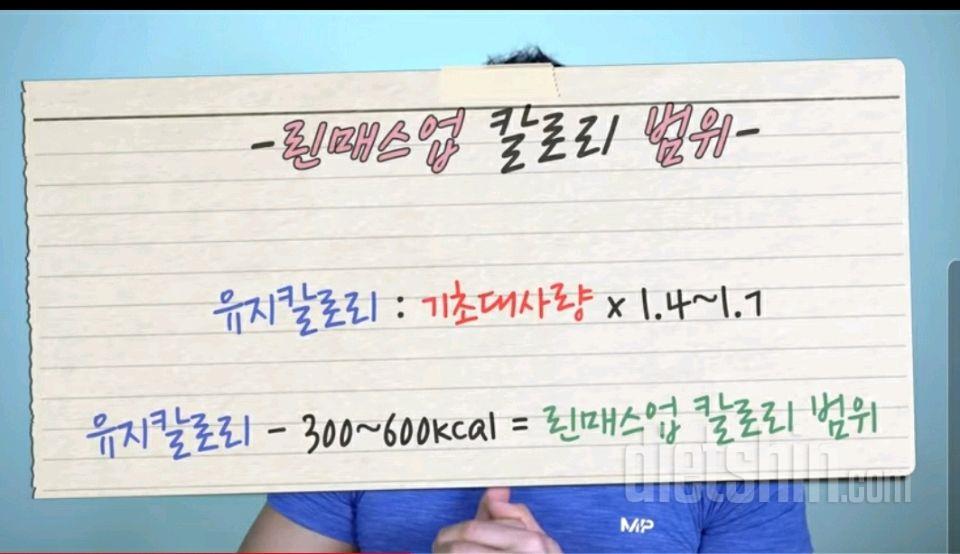 -린매스업 칼로리 범위-
유지칼로리 : 기초대사량 x 1.4~1.7
유지칼로리 - 300~600kcal = 린매스업 칼로리 범위
dietshin.com
MP